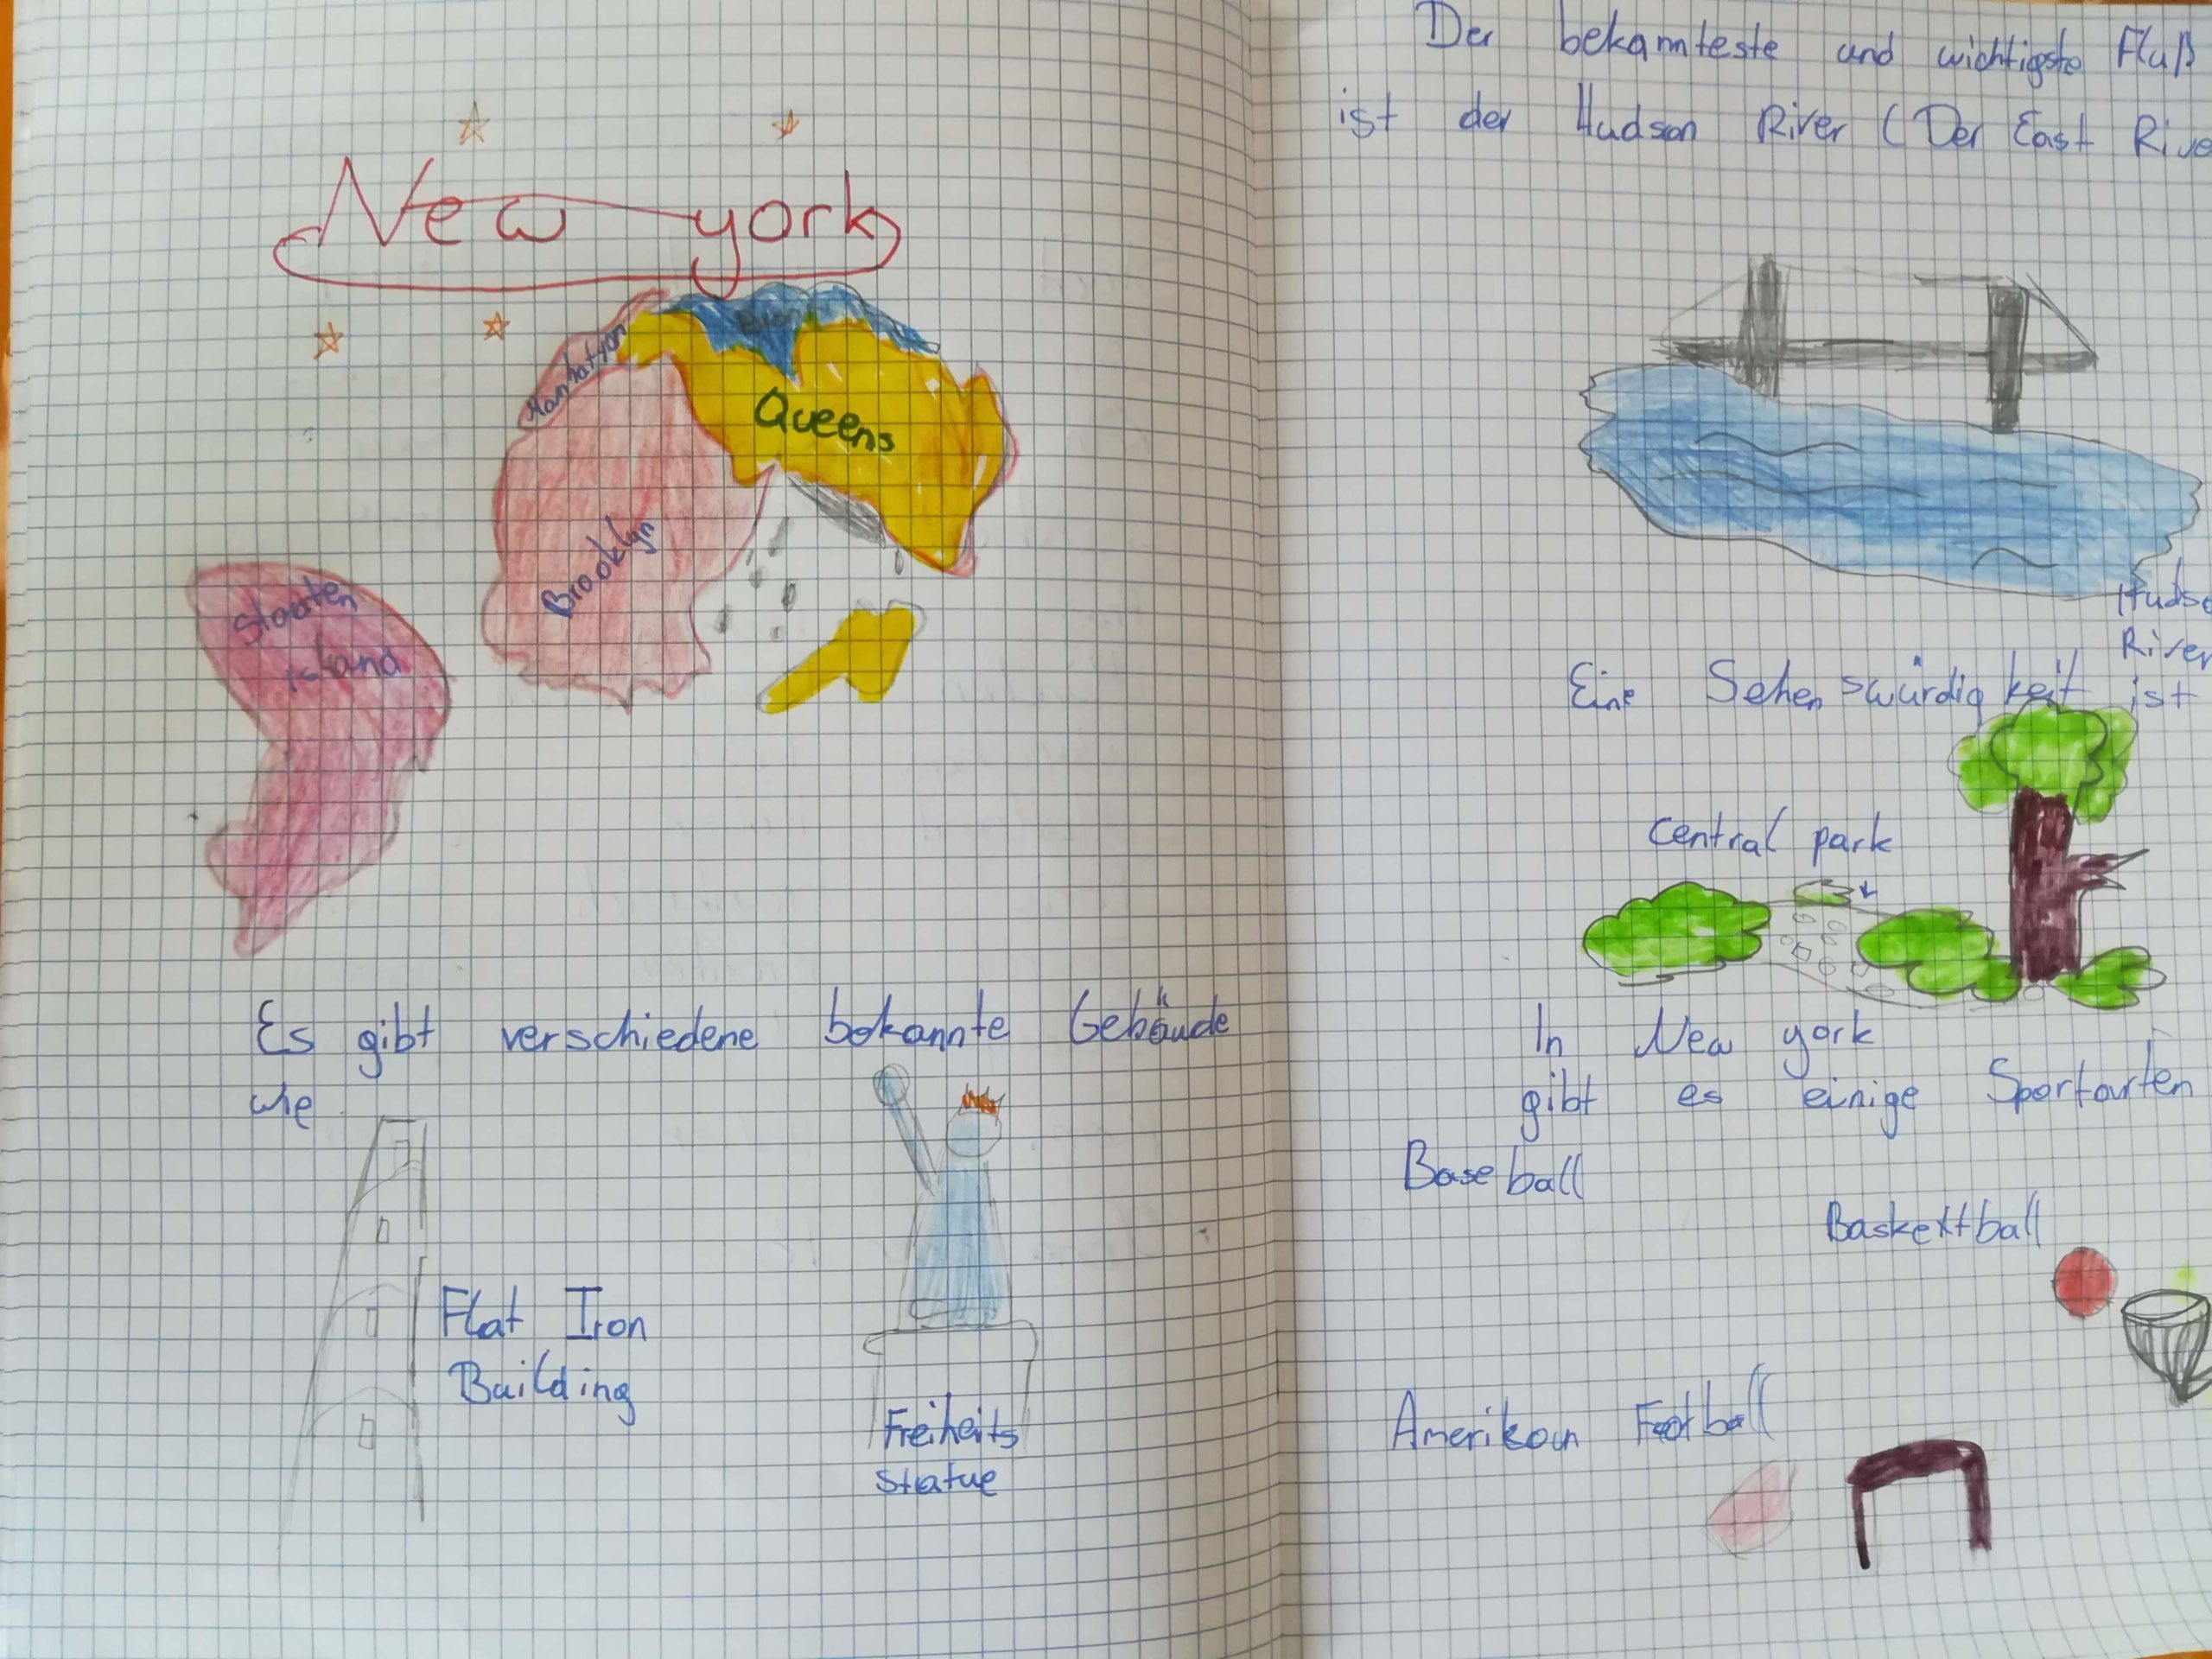 New york
Manhattan
Bronx
Queens
Brooklyn
Staaten
island
Es gibt verschiedene bekannte Gebäude
wie
Flat Iron
Building
Freiheits
statue
Der bekannteste und wichtigste Fluß
ist der Hudson River (Der East Rive
Hudso
River
Eine Sehenswürdigkeit ist
central park
In New york
gibt es einige Sportarten
Baseball
Baskettball
Amerikan Football